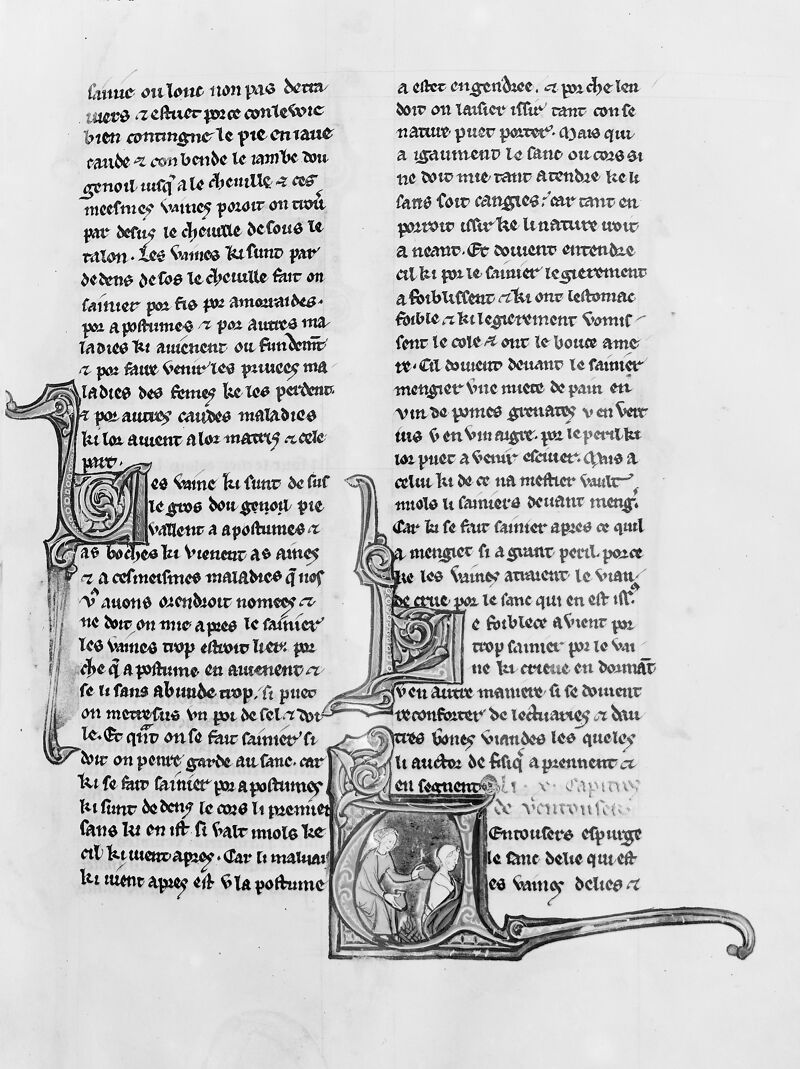 sainie ou loue non pas detra
uers ⁊ estuet por ce con le voie
bien contingne le pie en iaue
caude ⁊ con bende le iambe dou
genoil iusq̃ a le cheuille ⁊ ces
meesmes vaines poroit on trou̾
par desus le cheuille desous le
talon. Les vaines ki sunt par
dedens desos le cheuille fait on
sainier por fis por amorraides.
por apostumes ⁊ por autres ma
ladies ki auienent ou fundem̃t
⁊ por faire venir les priuees ma
ladies des femes ke les perdent
⁊ por autres caudes maladies
ki lor auient a lor matris ⁊ cele
part.
Les vaine ki sunt de sus
le gros dou genoil pie
vallent a apostumes ⁊
as boches ki vienent as aines
⁊ a cesmeismes maladies q̃ nos
v⁹ auons orendroit nomees ⁊
ne doit on mie apres le sainier
les vaines trop estroit lier. por
che q̃ apostume en auienent ⁊
se li sans abunde trop, si puet
on metre sus vn poi de sel ⁊ doi
le. Et q̃nt on se fait sainier si
doit on penre garde au sanc. car
ki se fait sainier por apostumes
ki sunt dedens le cors li premier
sans ki en ist si valt miols ke
cil ki uient apres. Car li maluais
ki uient apres est v la postume
a estet engendree. ⁊ por che len
doit on laisier issir tant con se
nature puet porter. Mais qui
a igaument le sanc ou cors si
ne doit mie tant atendre ke li
sans soit cangies: car tant en
porroit issir ke li nature iroit
a neant. Et doiuent entendre
cil ki por le sainier legierement
afoiblissent ⁊ ki ont lestomac
foible ⁊ ki legierement vomis
sent le cole ⁊ ont le bouce ame
re. Cil doiuent deuant le sainier
mengier vne miete de pain en
vin de pomes grenates v en vert
ius v en vin aigre. por le peril ki
lor puet auenir esciuer. Mais a
celui ki de ce na mestier vault
miols li sainiers deuant meng̾.
Car ki se fait sainier apres ce quil
a mengiet si a grant peril. por ce
ke les vaines atraient le vian
de crue por le sanc qui en est iss̾.
Le foiblece auient por
trop sainier por le vai
ne ki crieue en dormãt
v en autre maniere si se doiuent
reconforter de lectuaries ⁊ dau
tres bones viandes les queles
li auctor de fisiq̃ aprennent ⁊
en segnent. li · v · capitres
de ventouser.
Ventousers espurge
le sanc delie qui est
es vaines delies ⁊